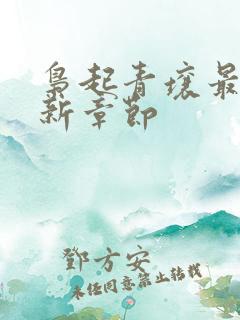 枭起青壤最
新章节
鄧方安
未经同意禁止转载